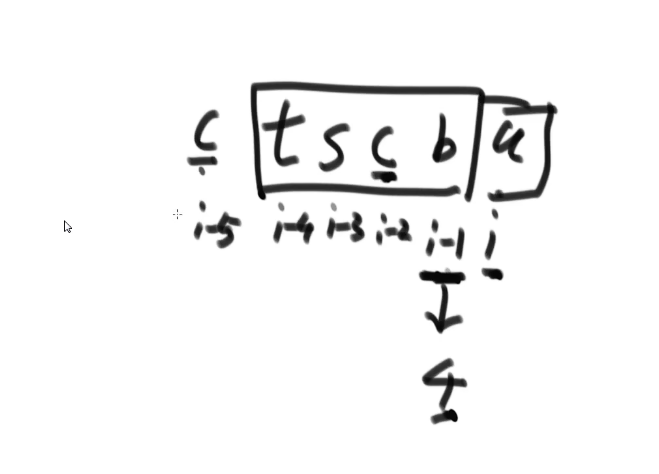 c t s c b a
i-5 i-4 i-3 i-2 i-1 i
4